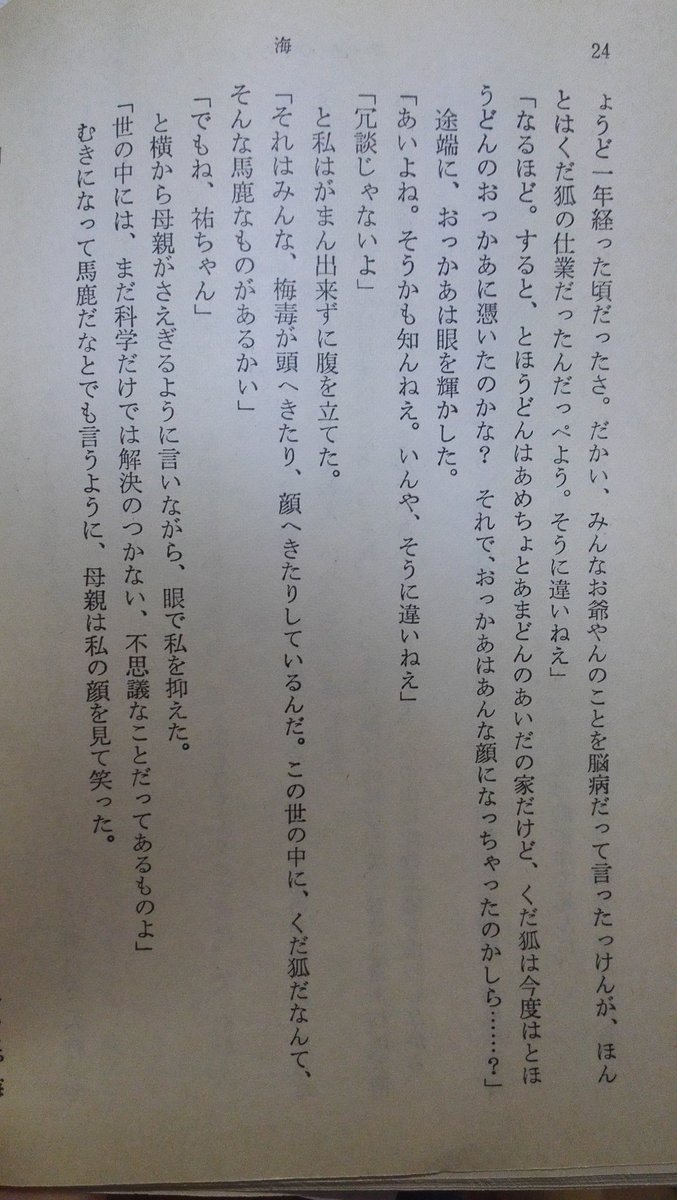 24
海
ょうど一年経った頃だったさ。だかい、みんなお爺やんのことを脳病だって言ったっけんが、ほん
とはくだ狐の仕業だったんだっぺよう。そうに違いねえ」
「なるほど。すると、とほうどんはあめちょとあまどんのあいだの家だけど、くだ狐は今度はとほ
うどんのおっかあに憑いたのかな？　それで、おっかあはあんな顔になっちゃったのかしら……？」
途端に、おっかあは眼を輝かした。
「あいよね。そうかも知んねえ。いんや、そうに違いねえ」
「冗談じゃないよ」
と私はがまん出来ずに腹を立てた。
「それはみんな、梅毒が頭へきたり、顔へきたりしているんだ。この世の中に、くだ狐だなんて、
そんな馬鹿なものがあるかい」
「でもね、祐ちゃん」
と横から母親がさえぎるように言いながら、眼で私を抑えた。
「世の中には、まだ科学だけでは解決のつかない、不思議なことだってあるものよ」
むきになって馬鹿だなとでも言うように、母親は私の顔を見て笑った。